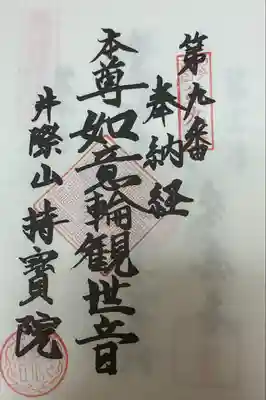 第九番
奉納経
本尊如意輪観世音
井際山持寳院